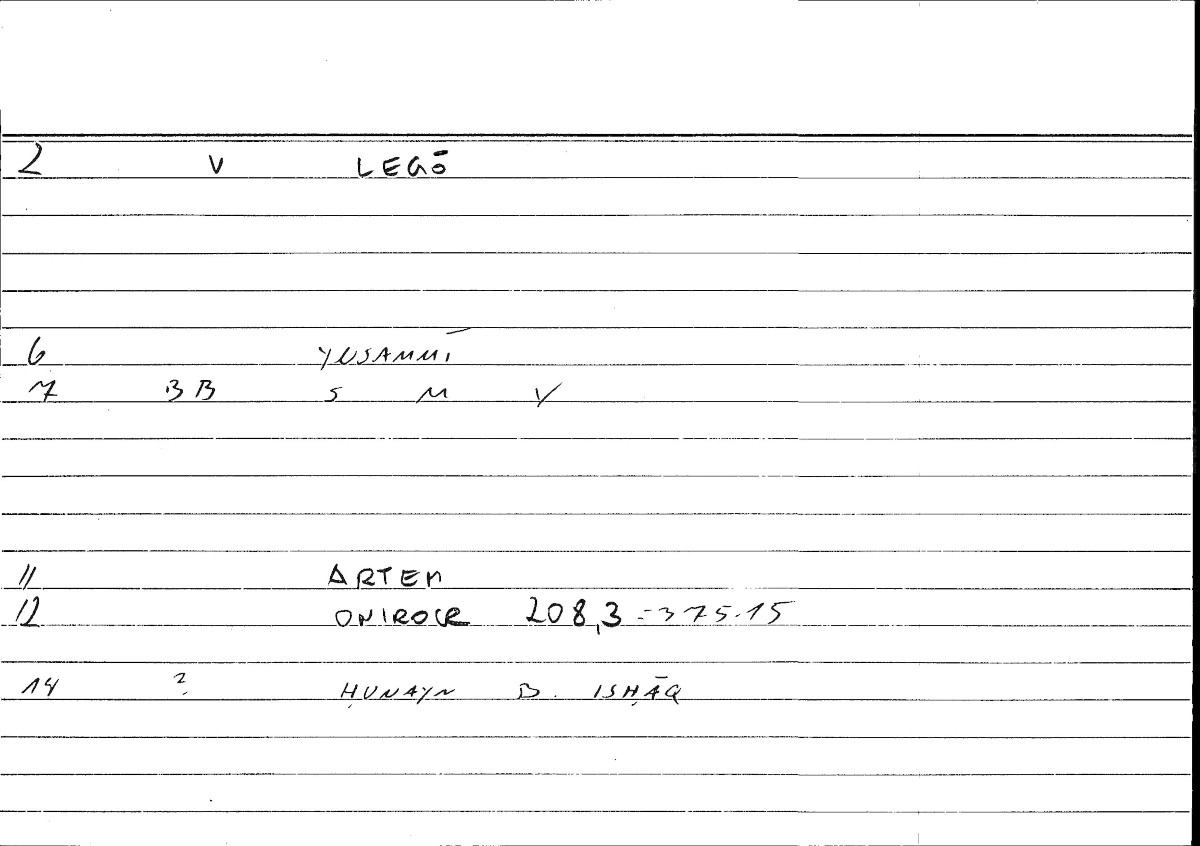 2 V LEGŌ
6 YUSAMMĪ
7 BB S M V
11 ARTEM
12 ONIROCR 208,3 = 375.15
14 ? ḤUNAYN B. ISḤĀQ